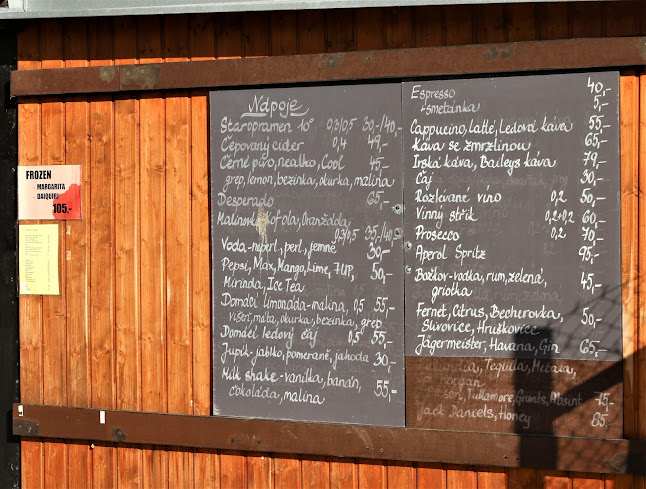 FROZEN
MARGARITA
DAIQUIRI
105,-
Nápoje
Staropramen 10° 0,3/0,5 30,-/40,-
Čepovaný cider 0,4 49,-
Černé pivo, nealko, Cool 45,-
grep, lemon, bezinka, okurka, malina
Desperado 65,-
Malinovka, Kofola, Oranžáda
0,3/0,5 35,-/40,-
Voda-neperl, perl, jemně 30,-
Pepsi, Max, Mango, Lime, 7UP, 50,-
Mirinda, Ice Tea
Domácí limonáda-malina, 0,5 55,-
višeň, máta, okurka, bezinka, grep
Domácí ledový čaj 0,5 55,-
Jupík-jablko, pomeranč, jahoda 30,-
Milk shake-vanilka, banán, 55,-
čokoláda, malina
Espresso 40,-
+smetánka 5,-
Cappucino, Latté, Ledová káva 55,-
Káva se zmrzlinou 65,-
Irská káva, Baileys káva 79,-
Čaj 30,-
Rozlévané víno 0,2 50,-
Vinný střik 0,2+0,2 60,-
Prosecco 0,2 70,-
Aperol Spritz 95,-
Božkov-vodka, rum, zelená, 45,-
griotka
Fernet, Citrus, Becherovka, 50,-
Slivovice, Hruškovice
Jägermeister, Havana, Gin 65,-
Tequila, Metaxa,
Morgan
Tullamore, Grants, Absint 75,-
Jack Daniels, Honey 85,-